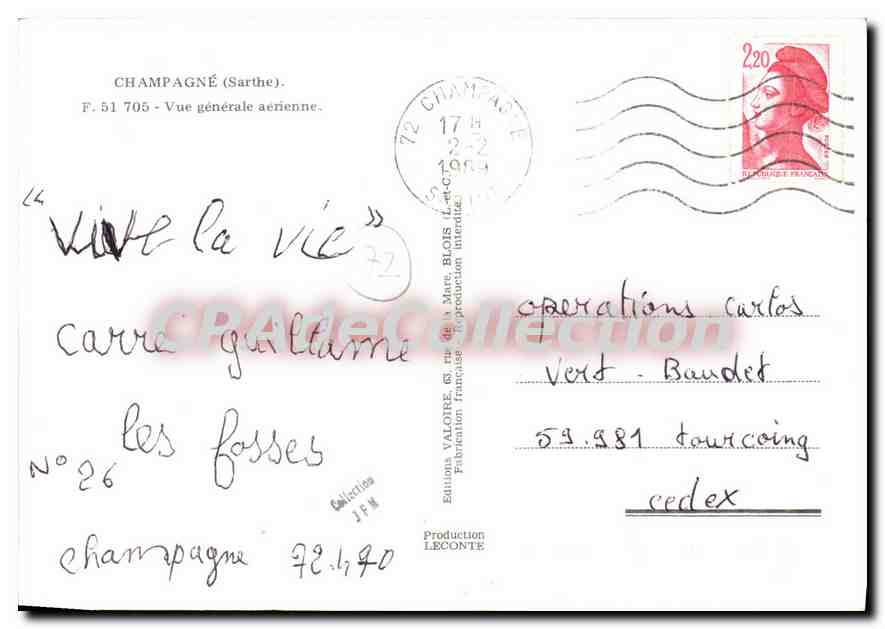 CHAMPAGNÉ (Sarthe).
F. 51 705 - Vue générale aérienne.
72 CHAMPAGNE
17 H
2-2
1989
2,20
REPUBLIQUE FRANÇAISE
"Vive la vie"
72
carré guillame
les fosses
N° 26
champagne 72.470
Collection
J F M
Editions VALOIRE, 63, rue de la Mare, BLOIS (L.-et-C.)
Fabrication française - Reproduction interdite
Production
LECONTE
operations carlos
vert - Baudet
59.981 tourcoing
cedex
CPAdeCollection